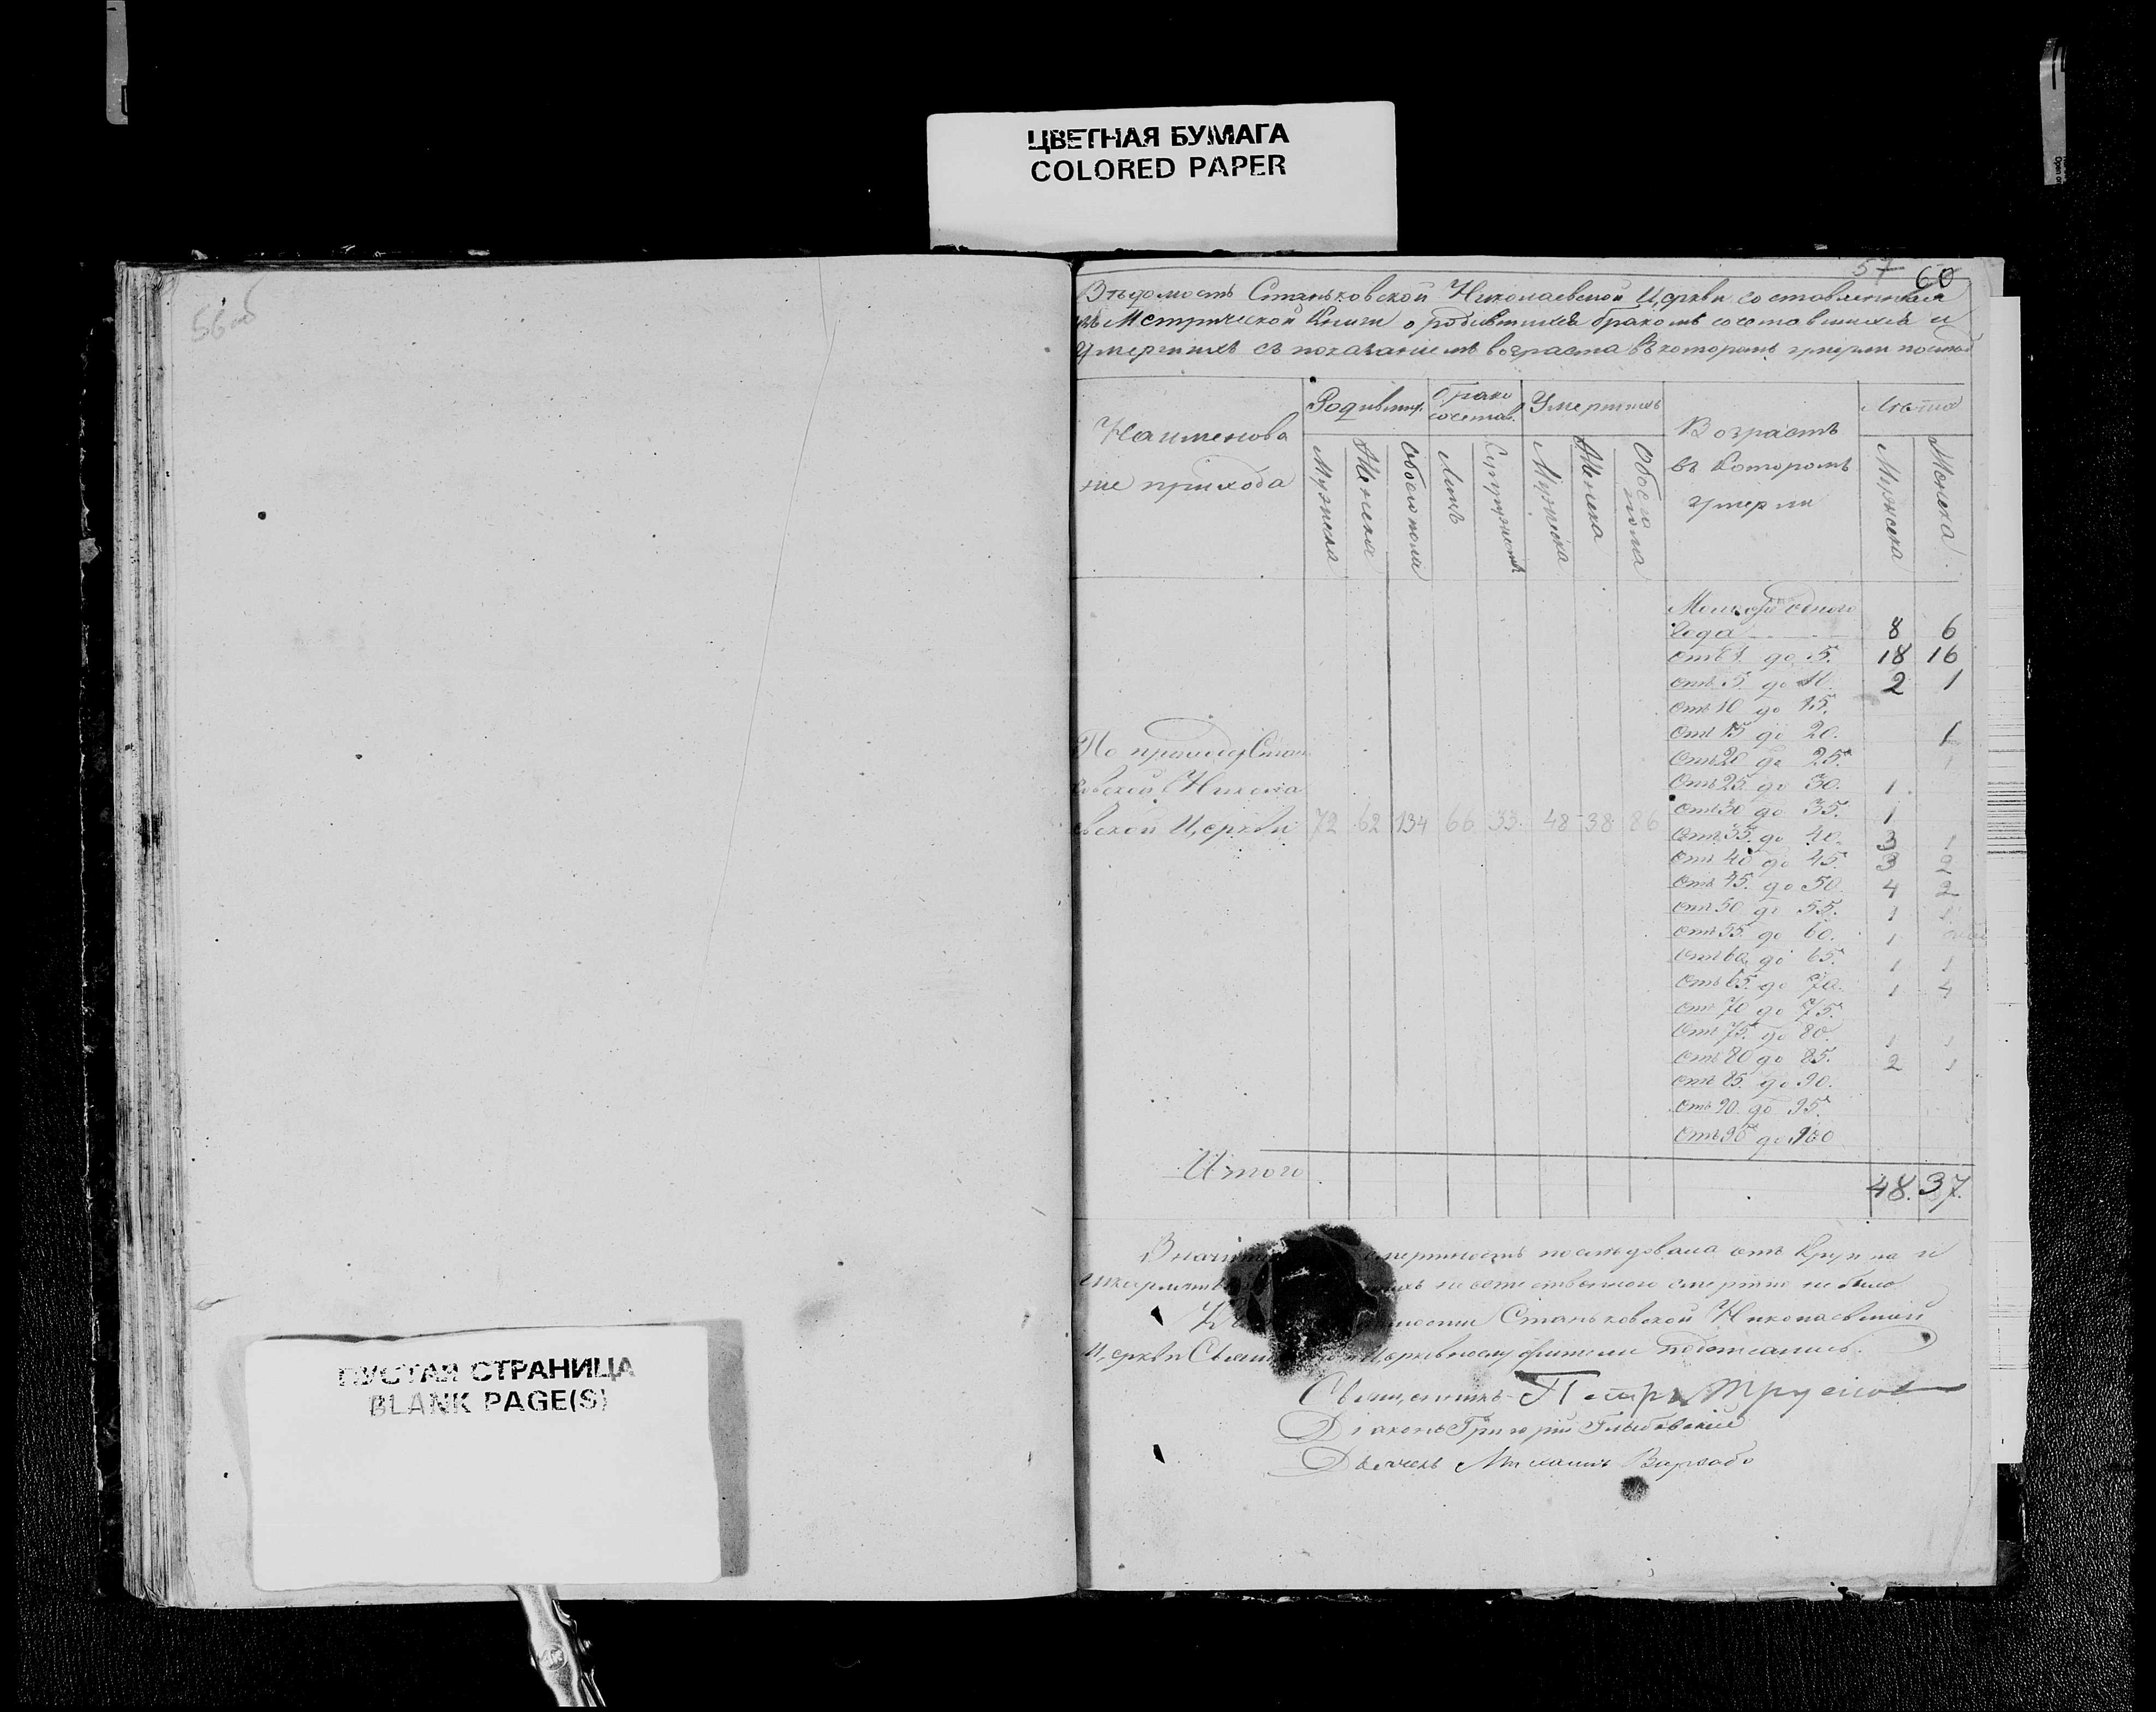 ЦВЕТНАЯ БУМАГА
COLORED PAPER
56 об
ПУСТАЯ СТРАНИЦА
BLANK PAGE(S)
57 60
Вѣдомость Станьковской Николаевской Церкви составленная
изъ Метрической Книги о родившихся бракомъ сочетавшихся и
Умершихъ съ показаніемъ возраста въ которомъ умерли
Наименова
ніе прихода
Родивших.
Брако
сочетав.
Умершихъ
Возрастъ
въ Которомъ
умерли
Лѣта
Мужеска
Женска
Обоего пола
Лицъ
Супружествъ
Мужеска
Женска
Обоего
пола
Мужеска
Женска
одного
года 8 6
отъ 1. до 5. 18 16
отъ 5. до 10. 2 1
отъ 10 до 15.
отъ 15 до 20. 1
отъ 20 до 25. 1
отъ 25. до 30. 1
отъ 30 до 35. 1
отъ 35. до 40. 3 1
отъ 40 до 45. 3 2
отъ 45. до 50. 4 2
отъ 50 до 55. 1 1
отъ 55. до 60. 1
отъ 60. до 65. 1 1
отъ 65. до 70. 1 4
отъ 70 до 75.
отъ 75. до 80. 1 1
отъ 80 до 85. 2 1
отъ 85. до 90.
отъ 90. до 95.
отъ 95 до 100
По приходу Стань
ковской Никола
евской Церкви 72 62 134 66 33. 48 38 86
Итого 48. 37.
смертность послѣдовала отъ Крупа и
неестественною смертію не было
Станьковской Николаевской
Церкви подписались.
Священникъ Петръ
Діаконъ Григорій
Дьячекъ Михаилъ